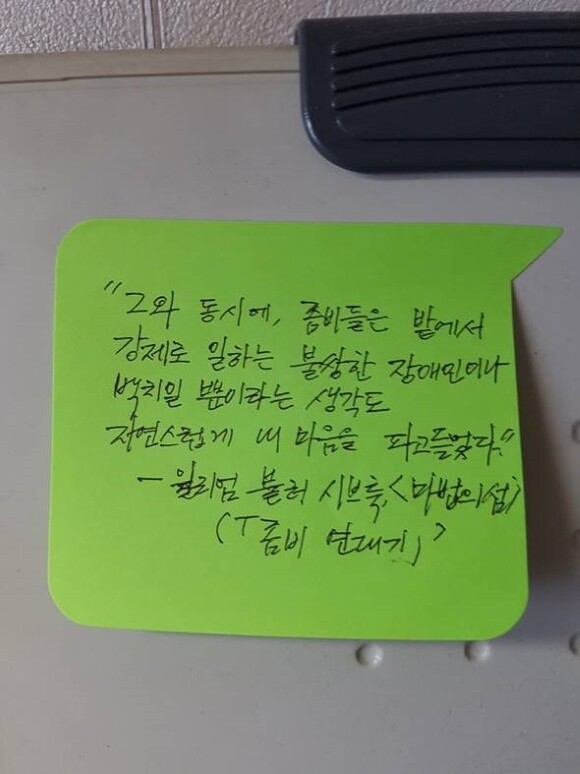 "그와 동시에, 좀비들은 밭에서
강제로 일하는 불쌍한 장애인이나
백치일 뿐이라는 생각도
자연스럽게 내 마음을 파고들었다."
- 윌리엄 뷸러 시브룩, <마법의 섬>
(『좀비 연대기』)